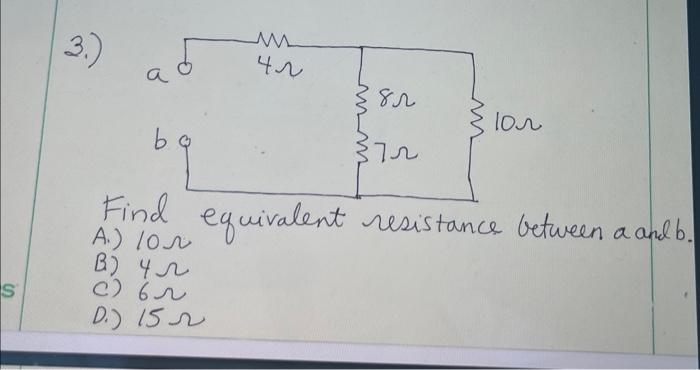 3.)
4Ω
a
8Ω
10Ω
b
7Ω
Find equivalent resistance between a and b.
A.) 10Ω
B) 4Ω
C) 6Ω
D.) 15Ω
S